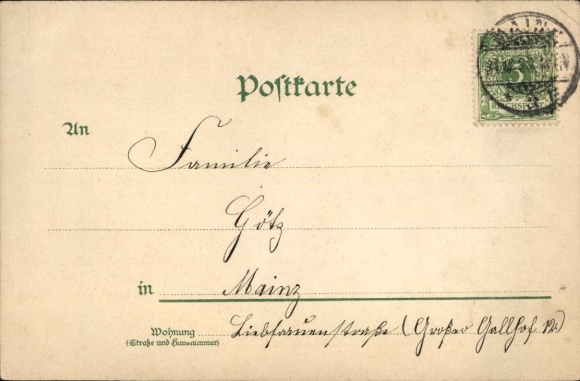 MAINZ
5
REICHSPOST
Postkarte
An
Familie
Götz
in Mainz
Wohnung Liebfrauenstraße (Großer
(Straße und Hausnummer)